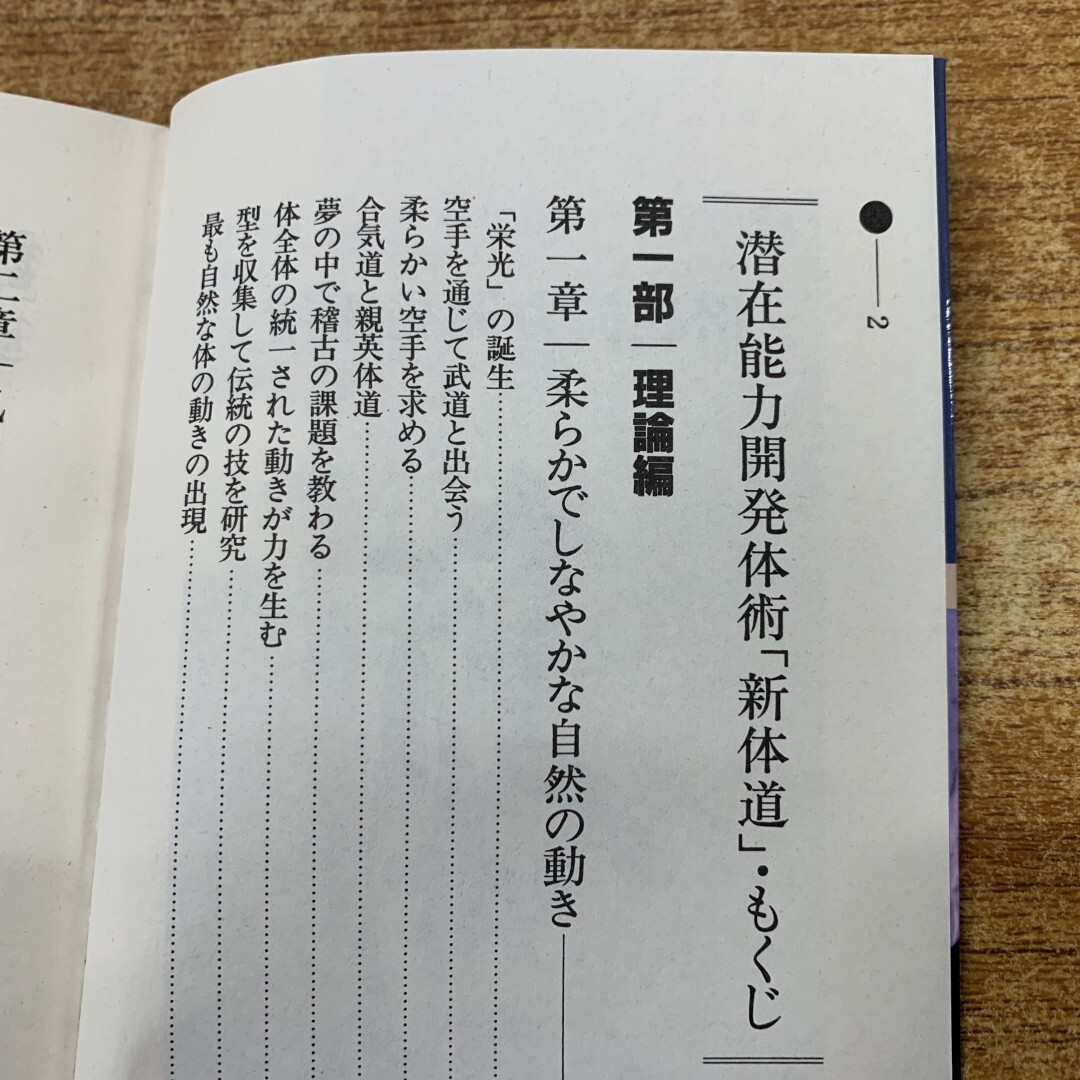 2
潜在能力開発体術「新体道」・もくじ
第一部｜理論編
第一章｜柔らかでしなやかな自然の動き
「栄光」の誕生
空手を通じて武道と出会う
柔らかい空手を求める
合気道と親英体道
夢の中で稽古の課題を教わる
体全体の統一された動きが力を生む
型を収集して伝統の技を研究
最も自然な体の動きの出現
第二章